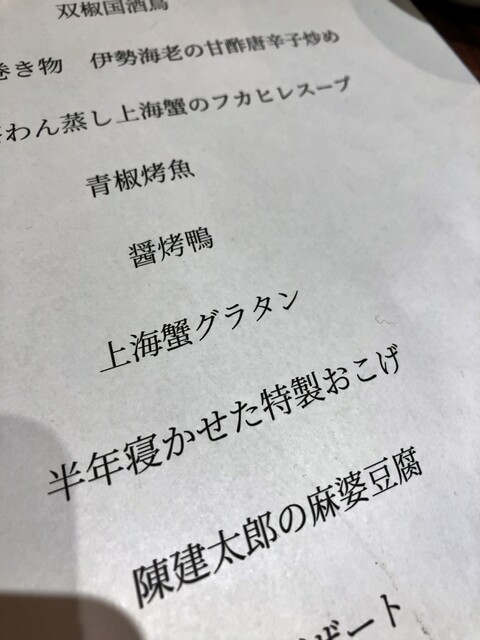 双椒国酒鳥
巻き物 伊勢海老の甘酢唐辛子炒め
わん蒸し上海蟹のフカヒレスープ
青椒烤魚
醤烤鴨
上海蟹グラタン
半年寝かせた特製おこげ
陳建太郎の麻婆豆腐
デザート